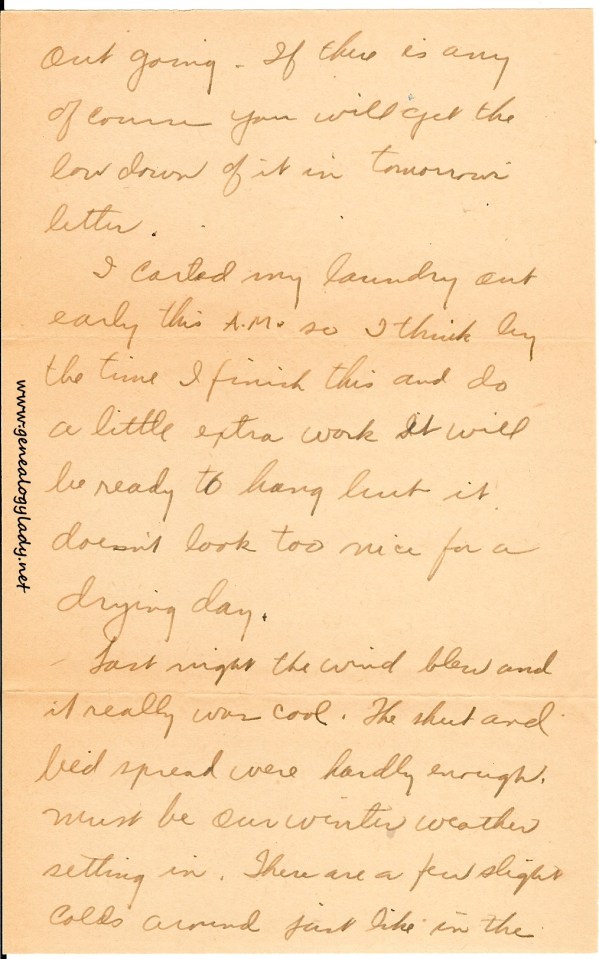 out going - If there is any
of course you will get the
low down of it in tomorrow's
letter.
I carted my laundry out
early this A.M. so I think by
the time I finish this and do
a little extra work it will
be ready to hang but it
doesn't look too nice for a
drying day.
- Last night the wind blew and
it really was cool. The sheet and
bed spread were hardly enough.
Must be our winter weather
setting in. There are a few slight
colds around just like in the
www.genealogylady.net